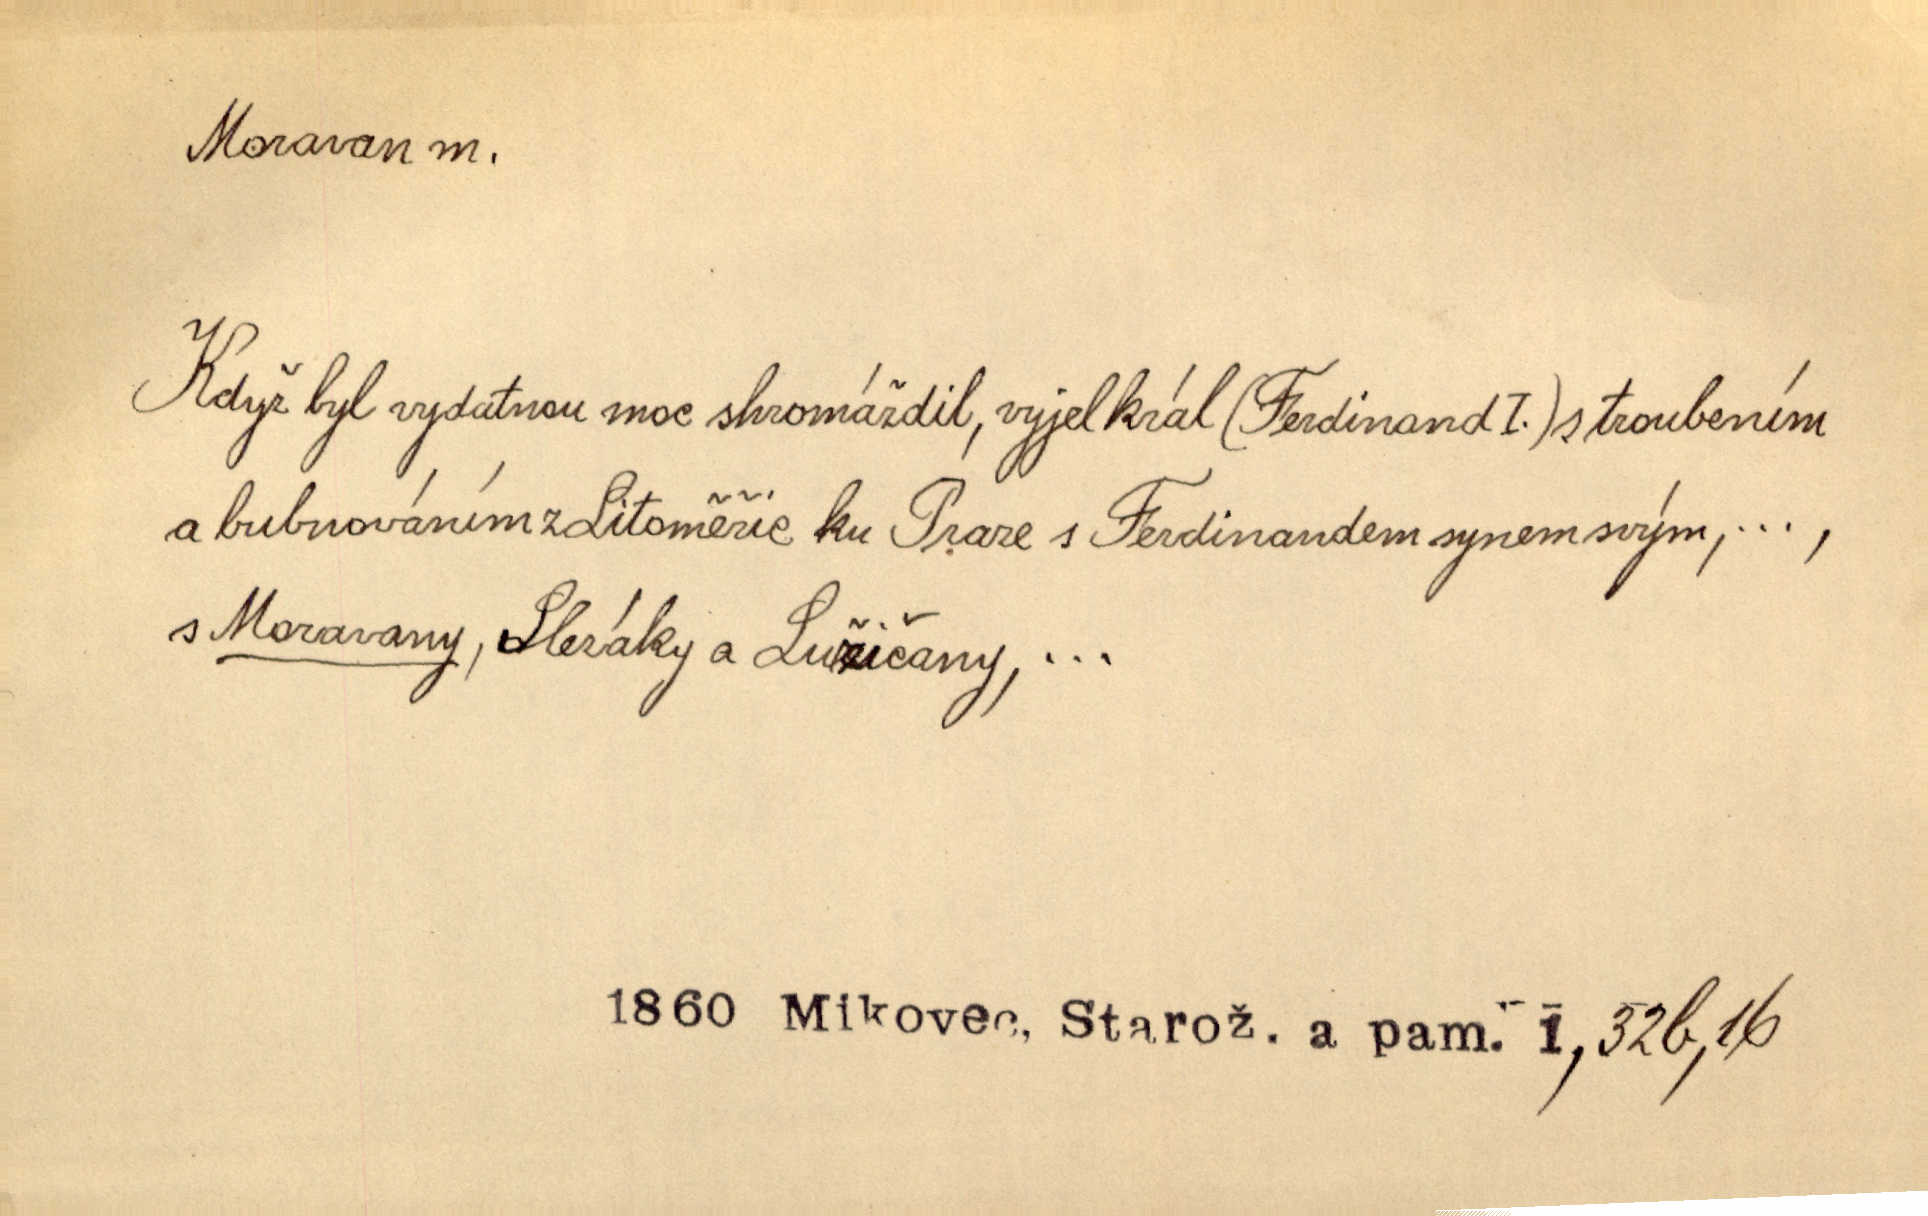 Moravan m.
Když byl vydatnou moc shromáždil, vyjel král (Ferdinand I.) s troubením
a bubnováním z Litoměřic ku Praze s Ferdinandem synem svým, ... ,
s Moravany, Slezáky a Lužičany, ...
1860 Mikovec, Starož. a pam. I, 32b, 16